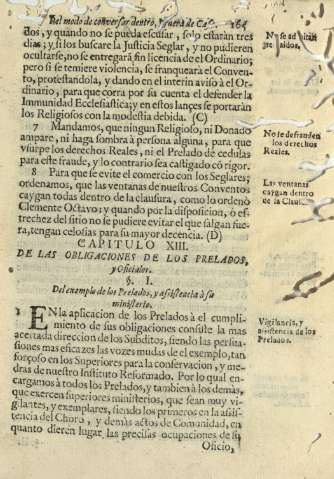 Del modo de conversar dentro, y fuera de Ca
dos, y quando no se pueda escusar, solo estarán tres
dias; y si los buscare la Justicia Seglar, y no pudieren
ocultarse, no se entregará sin licencia de el Ordinario;
pero si se temiere violencia, se franqueará el Conven-
to, protestandola, y dando en el interin aviso à el Or-
dinario, para que corra por su cuenta el defender la
Immunidad Ecclesiastica; y en estos lançes se portaràn
los Religiosos con la modestia debida. (C)
7 Mandamos, que ningun Religioso, ni Donado
ampare, ni haga sombra à persona alguna, para que
vsurpe los derechos Reales, ni el Prelado dè cedulas
para este fraude, y lo contrario sea castigado cõ rigor.
8 Para que se evite el comercio con los Seglares;
ordenamos, que las ventanas de nuestros Conventos
caygan todas dentro de la clausura, como lo ordenò
Clemente Octavo; y quando por la disposicion, o es-
trechez del sitio no se pudiere evitar el que salgan fue-
ra, tengan celosias para su mayor decencia. (D)
CAPITULO XIII.
DE LAS OBLIGACIONES DE LOS PRELADOS,
y Oficiales.
§. I.
Del exemplo de los Prelados, y assistencia à su
ministerio.
1 EN la aplicacion de los Prelados à el cumpli-
miento de sus obligaciones consiste la mas
acertada direccion de los Subditos, siendo las persua-
siones mas eficazes las vozes mudas de el exemplo, tan
forçoso en los Superiores para la conservacion, y me-
dras de nuestro Instituto Reformado. Por lo qual en-
cargamos à todos los Prelados, y tambien à los demàs,
que exercen superiores ministerios, que sean muy vi-
gilantes, y exemplares, siendo los primeros en la asis-
tencia del Choro, y demàs actos de Comunidad, en
quanto dieren lugar las precisas ocupaciones de su
Oficio,
No se defrauden
los derechos
Reales.
Las ventanas
caygan dentro
de la Clau
Vigilancia, y
assistencia de los
Prelados.